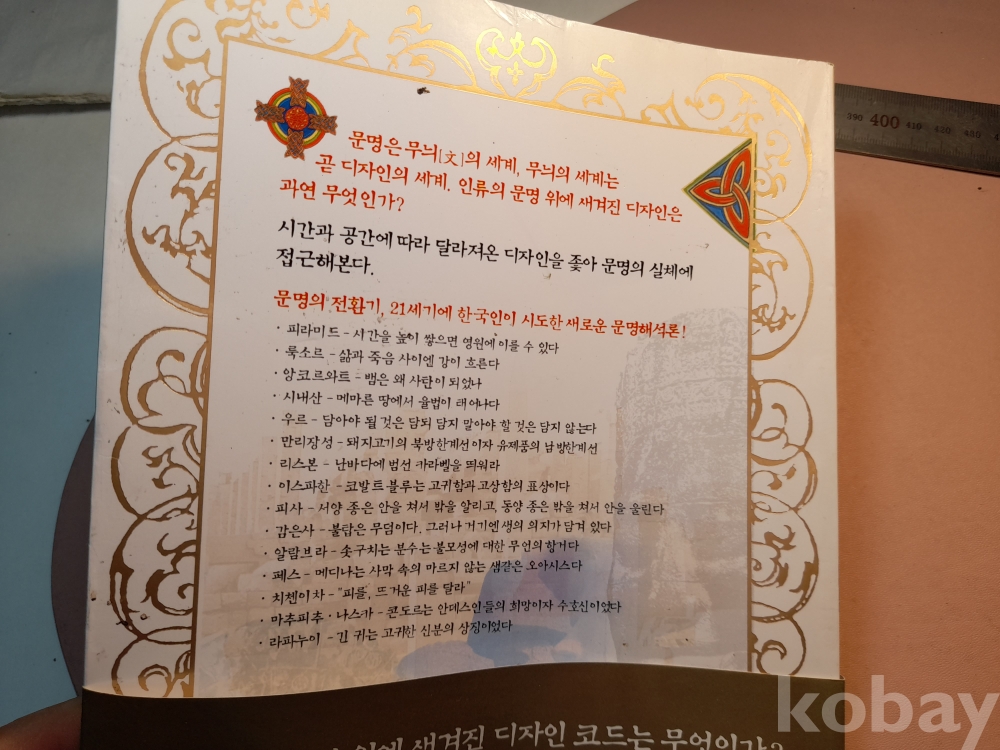 문명은 무늬[文]의 세계, 무늬의 세계는
곧 디자인의 세계. 인류의 문명 위에 새겨진 디자인은
과연 무엇인가?
시간과 공간에 따라 달라져온 디자인을 좇아 문명의 실체에
접근해본다.
문명의 전환기, 21세기에 한국인이 시도한 새로운 문명해석론!
· 피라미드 – 시간을 높이 쌓으면 영원에 이를 수 있다
· 룩소르 – 삶과 죽음 사이엔 강이 흐른다
· 앙코르와트 – 뱀은 왜 사탄이 되었나
· 시내산 – 메마른 땅에서 율법이 태어나다
· 우르 – 담아야 될 것은 담되 담지 말아야 할 것은 담지 않는다
· 만리장성 – 돼지고기의 북방한계선이자 유제품의 남방한계선
· 리스본 – 난바다에 범선 카라벨을 띄워라
· 이스파한 – 코발트 블루는 고귀함과 고상함의 표상이다
· 피사 – 서양 종은 안을 쳐서 밖을 알리고, 동양 종은 밖을 쳐서 안을 울린다
· 감은사 – 불탑은 무덤이다. 그러나 거기엔 생의 의지가 담겨 있다
· 알람브라 – 솟구치는 분수는 불모성에 대한 무언의 항거다
· 페스 – 메디나는 사막 속의 마르지 않는 샘같은 오아시스다
· 치첸이차 – "피를, 뜨거운 피를 달라"
· 마추피추 · 나스카 – 콘도르는 안데스인들의 희망이자 수호신이었다
· 라파누이 – 긴 귀는 고귀한 신분의 상징이었다
위에 새겨진 디자인 코드는 무엇인가?
390 400 410 420 430
kobay